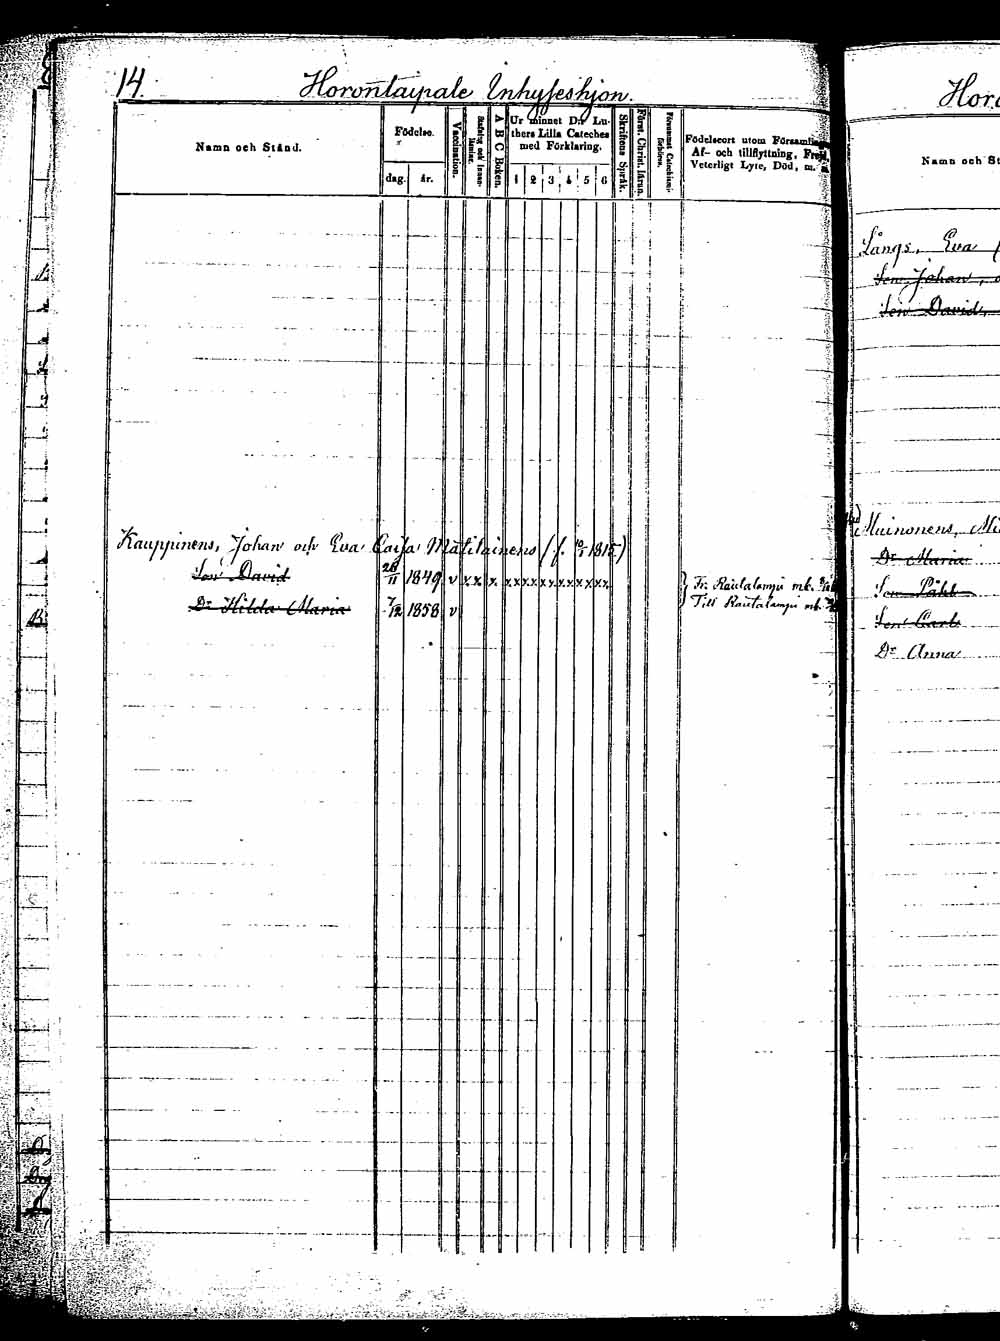 14.
Horontaipale Inhyseshjon.
Namn och Stånd.
Födelse.
dag.
år.
Vaccination.
A B C Boken.
Ur minnet D:r Lu-
thers Lilla Cateches
med Förklaring.
1 2 3 4 5 6
Skriftens Språk.
Först. Christ. läran.
Födelseort utom Församling
Af- och tillflyttning, Frejd,
Veterligt Lyte, Död, m. m.
Kauppinens, Johan och Eva Caisa Matilainens (f. 10/1 1815)
Son David 26/11 1849 v x x x x x x x x x x x x x } Fr. Rautalampi mb.
Dr Hilda Maria 7/12 1858 v Till Rautalampi mb.
Hor
Namn och St
Långs, Eva
Son Johan,
Son David,
Muinonens, Mi
Dr Maria
Son Påhl
Son Carl
Dr Anna